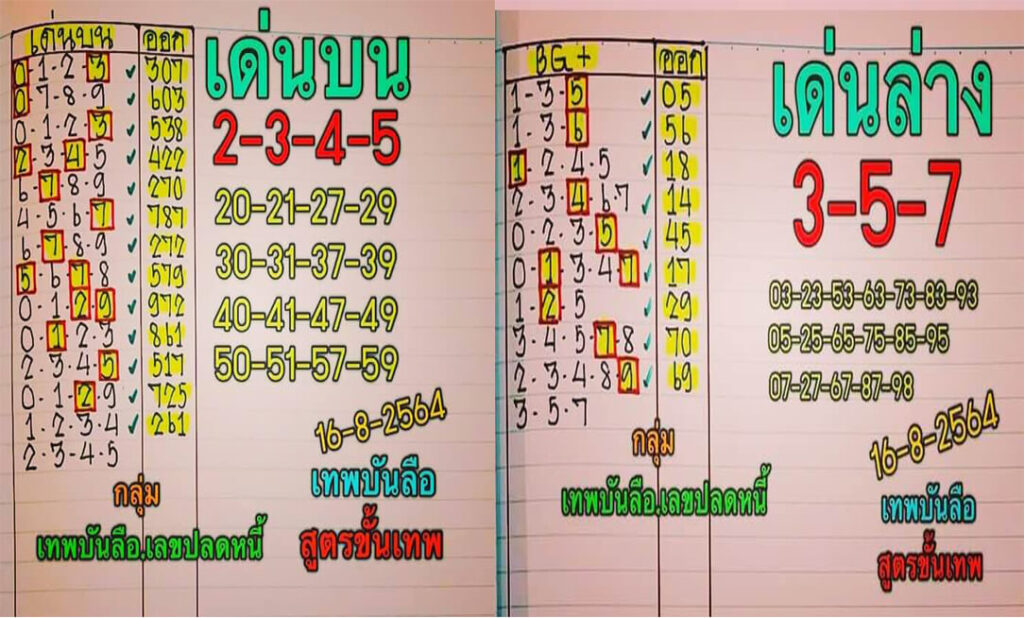 เด่นบน ออก
0-1-2-3 ✓ 307
0-7-8-9 ✓ 603
0-1-2-3 ✓ 538
2-3-4-5 ✓ 422
6-7-8-9 ✓ 270
4-5-6-7 ✓ 787
6-7-8-9 ✓ 272
5-6-7-8 ✓ 579
0-1-2-9 ✓ 972
0-1-2-3 ✓ 861
2-3-4-5 ✓ 517
0-1-2-9 ✓ 725
1-2-3-4 ✓ 261
2-3-4-5
เด่นบน
2-3-4-5
20-21-27-29
30-31-37-39
40-41-47-49
50-51-57-59
16-8-2564
กลุ่ม
เทพบันลือ.เลขปลดหนี้
เทพบันลือ
สูตรขั้นเทพ
BG+ ออก
1-3-5 ✓ 05
1-3-6 ✓ 56
1-2-4-5 ✓ 18
2-3-4-6-7 ✓ 14
0-2-3-5 ✓ 45
0-1-3-4-7 ✓ 17
1-2-5 ✓ 29
3-4-5-7-8 ✓ 70
2-3-4-8-9 ✓ 69
3-5-7
เด่นล่าง
3-5-7
03-23-53-63-73-83-93
05-25-65-75-85-95
07-27-67-87-98
16-8-2564
กลุ่ม
เทพบันลือ.เลขปลดหนี้
เทพบันลือ
สูตรขั้นเทพ